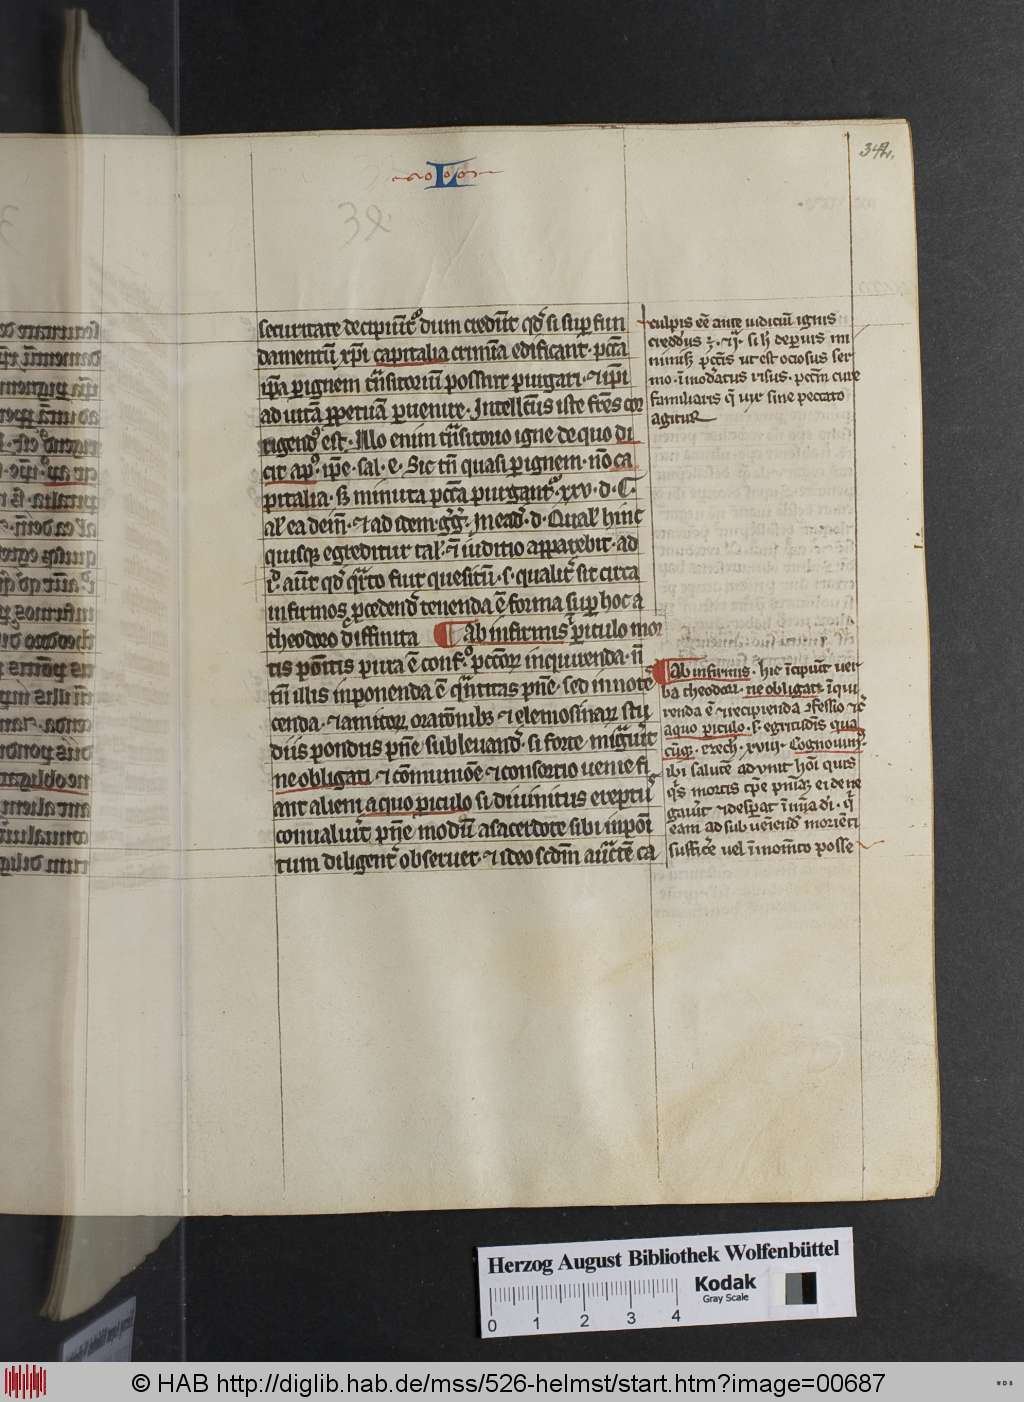 342.
L
38
securitate decipiūt᷑ dum credūt qd̛ si suꝑ fun
damentū xp̄i capitalia crimīa edificant· pctā
ip̄a ꝑ ignem t̄nsitoriū possint purgari· ⁊ ip̄i
ad uitā ꝑpetuā ꝑuenire· Intellect̄us iste fr̄es cor
rigend᷒ est· Illo enim t̄nsitorio igne de quo di
cit ap᷒· ip̄e· sal· e· Sic tn̄ quasi ꝑ ignem· nō ca
pitalia· s; minuta pctā purgant᷑· xxv· d· C·
al' ea dem̄· ⁊ ad idem· g̛g̛· in ead̛· d· Qual' hinc
quisqꝫ egreditur tal'· ī iuditio apparebit· ad
aut̄ qd̛ qͣrto fuit quesitū· s· qualit᷑ sit circa
infirmos ꝓcedend᷒ tenenda ē forma suꝑ hoc a
theodoro diffinita ¶ Ab infirmis ꝑiculo mor
tis pōitis pura ē conf᷒· pcc̄or̄ inquirenda· n̄
tn̄ illis inponenda ē qͣntitas pn̄e· sed innote
cenda· ⁊ amicor̄ orat̄onib; ⁊ elemosinar̄ stu
diis pondus pn̄e subleuand̛· si forte migͣuīt
ne obligati ⁊ cōmuniōe ⁊ consortio uenie fi
ant alieni a quo ꝑiculo si diuinitus ereptus
conualưit pn̄e modū a sacerdote sibi inpoī
tum diligent᷑ obseruet· ⁊ ideo sc̄dm̄ auc̄tēm ca
culpis eē ante iudiciū ignis
credd̛us ē·
nimis; pct̄is ut est ociosus ser
mo· īmod̛atus risus· pcctm̄ cure
familiaris q̄ uix sine peccato
agitur
¶ Ab infirmis· hic īcipiūt uer
ba theodori· ne obligati īqui
renda ē ⁊ recipienda ꝯfessio
a quo ꝑiculo· s· egritudīs qua
cūqꝫ· ezech· xviii· Cognouim᷒
ibi salutē adunit hōi quis
qͥs mortis tp̄e pnīaꝫ ei dene
gaưit ⁊ desꝑat ī mīa dī· q̄
eam ad subueniend̛ morienti
suffic̄e uel ī momēto posse
Herzog August Bibliothek Wolfenbüttel
0 1 2 3 4
Kodak
Gray Scale
© HAB http://diglib.hab.de/mss/526-helmst/start.htm?image=00687